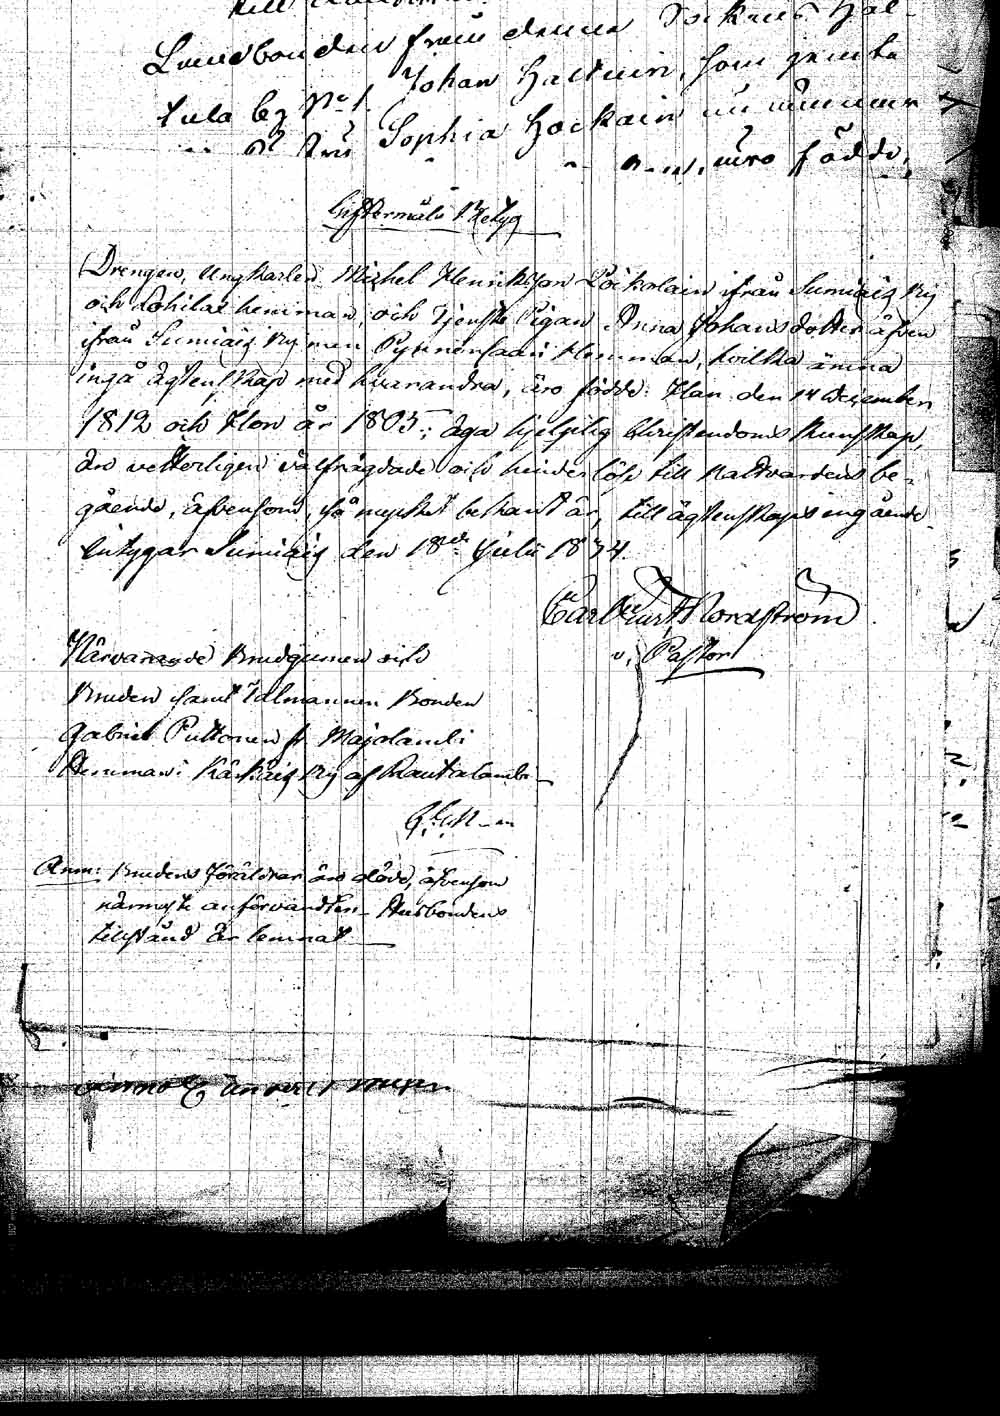 Landbonden från denna Sockens Hal-
tula by No 1. Johan Hackuin, som jemte
Sophia Hockain nu
äro födde,
Giftermåls Betyg
Drengen, Ungkarlen Michel Henriksson Löikolain ifrån Sumiais By
och Lohilax hemman, och Tjenste Pigan Anna Johansdotter äfven
ifrån Sumiais By men Pynnönsaari Hemman, hvilka ämna
ingå ägtenskap med hvarandra, äro födde: Han den 14 December
1812 och Hon år 1805; äga hjelplig Christendoms Kunskap,
äro vetterligen välfrägdade och hinderlöse till Nattvardens be-
gående, äfvensom, så mycket bekant är, till ägtenskaps ingående
Intygar Sumiais den 18de Julii 1834.
Carl Curt Nordström
v. Pastor
Närvarande Brudgumen och
Bruden samt Talmannen Bonden
Gabriel Puttonen fr Majalambi
Hemman i Kärkäis By af Rautalambi
Anm: Brudens Föräldrar äro döde, äfvensom
närmste anförvandter. Husbondens
tillstånd är lemnat